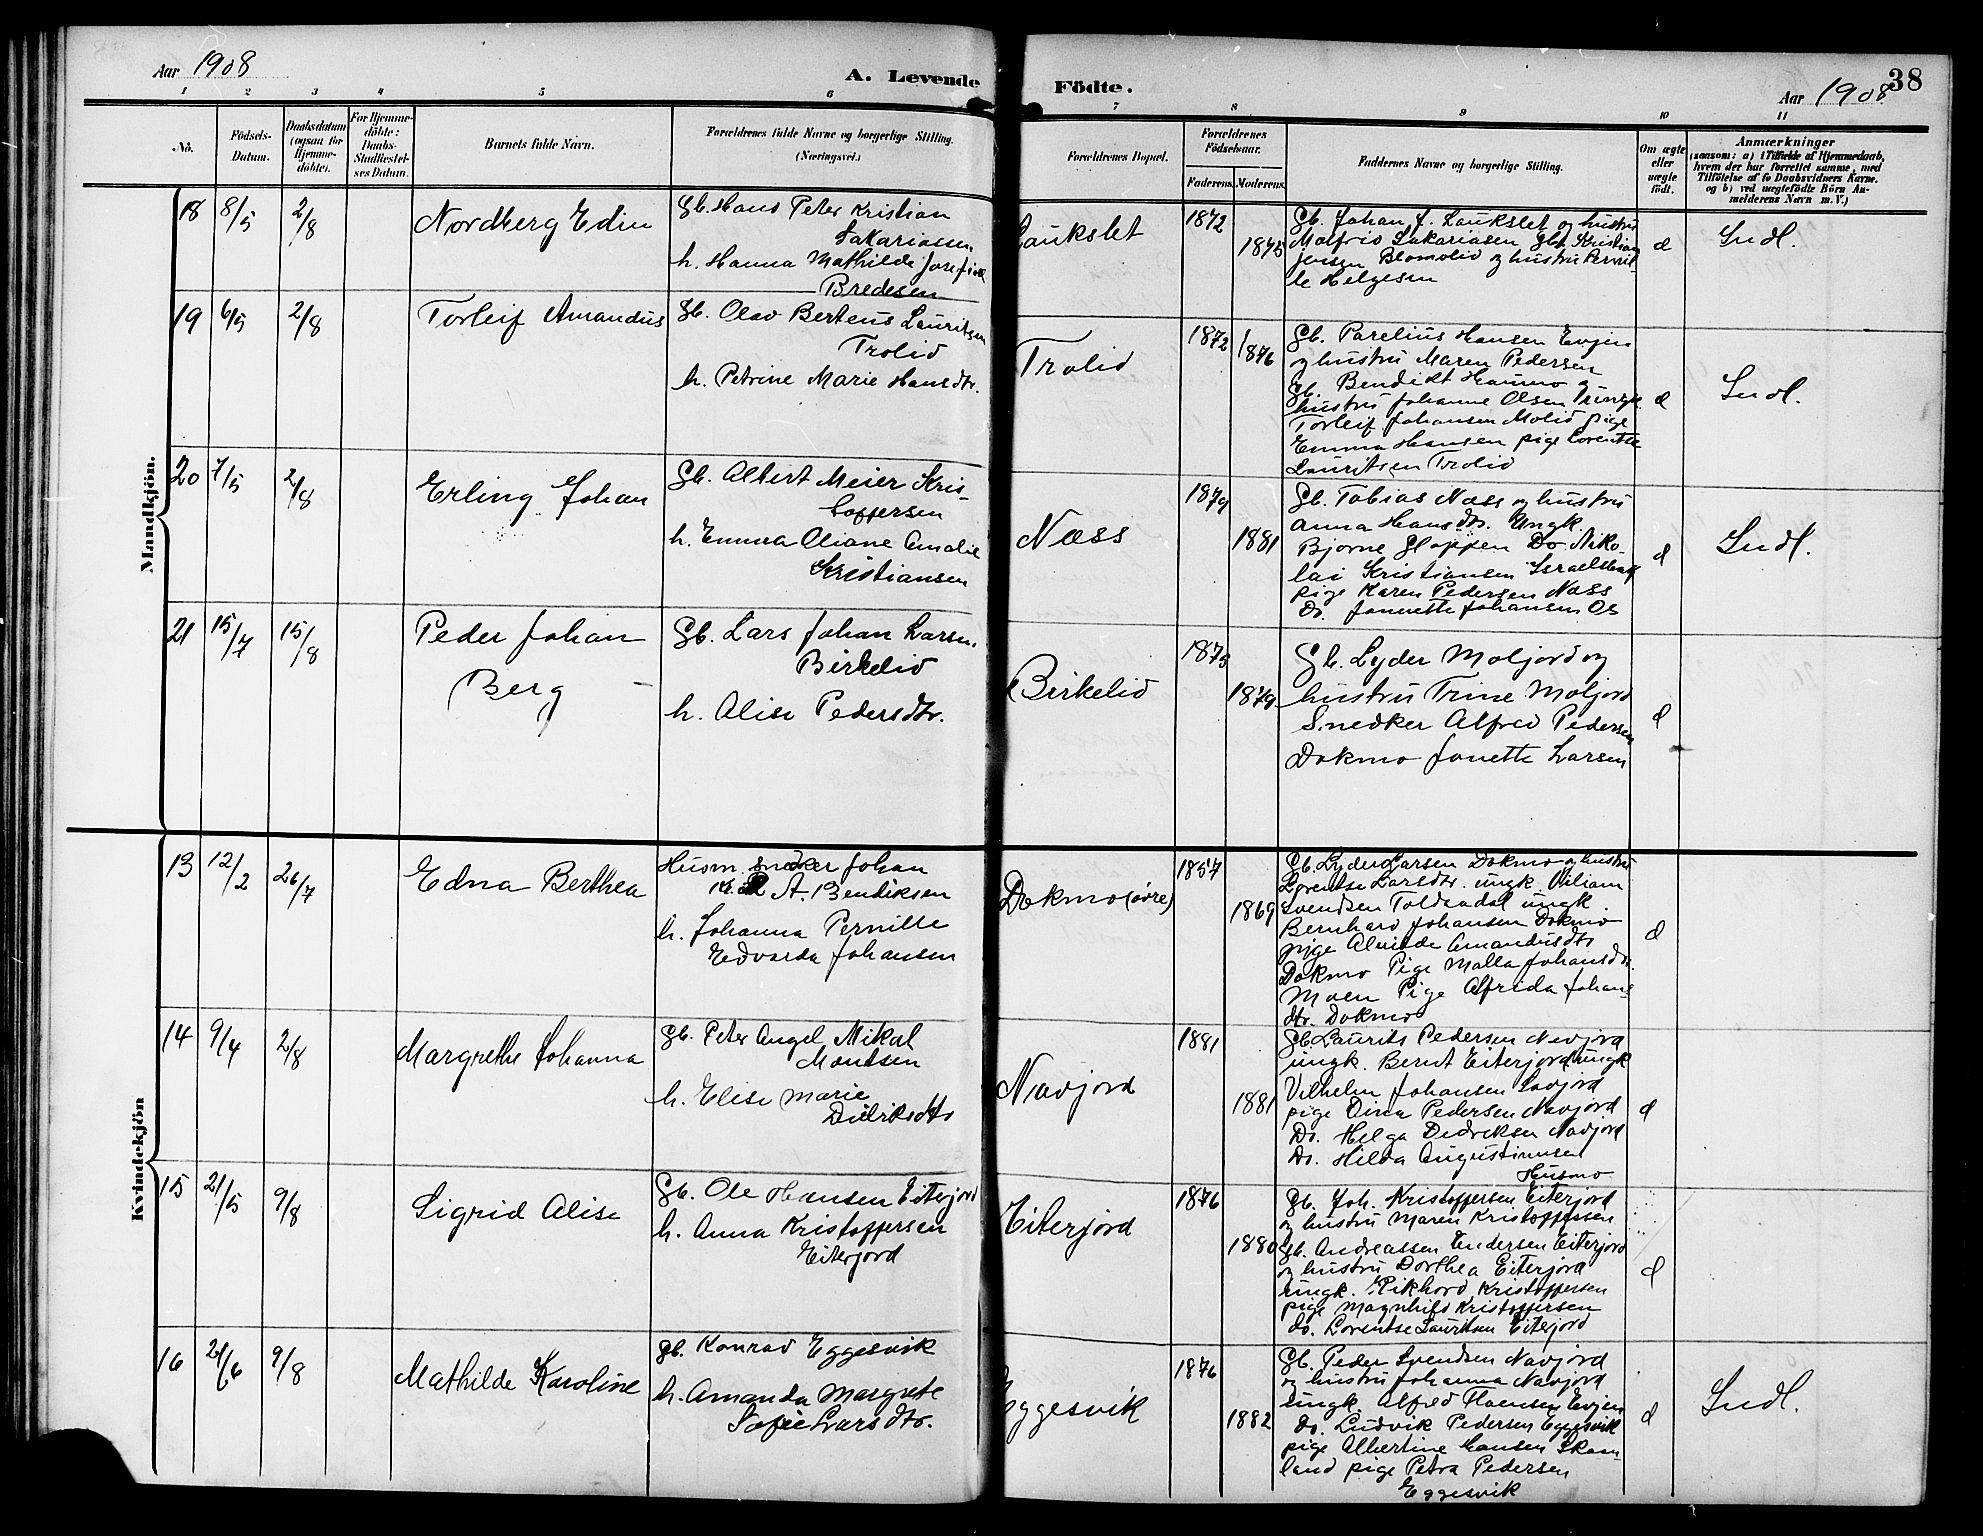 Aar 1908
A. Levende Födte.
Aar 1908
38
1 2 3 4 5 6 7 8 9 10 11
No.
Födsels-
Datum.
Daabsdatum
(ogsaa for
Hjemme-
döbte).
For Hjemme-
döbte:
Daabs-
Stadfæstel-
ses Datum.
Barnets fulde Navn.
Forældrenes fulde Navne og borgerlige Stilling.
(Næringsvei.)
Forældrenes Bopæl.
Forældrenes
Födselsaar.
Faderens. Moderens.
Faddernes Navne og borgerlige Stilling.
Om ægte
eller
uægte
født.
Anmærkninger
(saasom: a) i Tilfælde af Hjemmedaab,
hvem der har forrettet samme, med
Tilföielse af to Daabsvidners Navne,
og b) ved uægtefödte Börn An-
melderens Navn m. V.)
Mandkjön.
18 8/5 2/8 Nordberg Edin
Gb. Hans Peter Kristian
Sakariassen
h. Hanna Mathilde Josefine
Bredesen
Laukslet 1872 1875
Gb. Johan J. Laukslet og hustru
Malfrid Sakariasen Gb. Kristian
Jensen Blomolid og hustru Pernil-
le Helgesen
d Indl.
19 6/5 2/8 Torleif Amandus
Gb. Olav Berteus Lauritsen
Trolid
h. Petrine Marie Hansdtr.
Trolid 1872 1876
Gb. Parelius Hansen Evjen
og hustru Maren Pedersen
Gb. Bendikt Hammo og
hustru Johanne Olsen ungk.
Torleif Johansen Molid pige
Emma Hansen pige Lorentse
Lauritsen Trolid
d Indl.
20 7/5 2/8 Erling Johan
Gb. Albert Meier Kris-
toffersen
h. Emma Oliane Amalie
Kristiansen
Næss 1879 1881
Gb. Tobias Næss og hustru
Anna Hansdtr. Ungk.
Bjarne Gloppen Do. Niko-
lai Kristiansen
pige Karen Pedersen Næss
Do. Jannette Johansen Os
d Indl.
21 15/7 15/8 Peder Johan
Berg
Gb. Lars Johan Larsen.
Birkelid
h. Alise Pedersdtr.
Birkelid 1875 1879
Gb. Lyder Moljord og
hustru Trine Moljord
Snedker Alfred Pedersen
Dokmo Janette Larsen
d
Kvindekjön
13 12/2 26/7 Edna Berthea
Husm. snedker Johan
A. Bendiksen
h. Johanna Pernille
Edvarda Johansen
Dokmo (øvre) 1857 1869
Gb. Lyder Larsen Dokmo og hustru
Lorentse Larsdtr. ungk. Viliam
Svendsen Toldaadal ungk.
Bernhard Johansen Dokmo
pige Alvilde Amandusdtr
Dokmo Pige Malla Johansdtr.
Moen Pige Alfrida Johans-
dtr. Dokmo
d
14 9/4 2/8 Margrethe Johanna
Gb. Peter Angel Mikal
Montsen
h. Elise Marie
Didriksdtr
Navjord 1881 1881
Gb. Laurits Pedersen Navjord
ungk. Bernt Eiterjord ungk
Vilhelm Johansen Savjord
pige Dina Pedersen Navjord
Do. Helga Dedreksen Navjord
Do. Hilda Augustinusen
Husmo
d
15 21/5 9/8 Sigrid Alise
Gb. Ole Hansen Eiterjord
h. Anna Kristoffersen
Eiterjord
Eiterjord 1876 1880
Gb. Joh. Kristoffersen Eiterjord
og hustru Maren Kristoffersen
Gb. Andreassen Endersen Eiterjord
og hustru Dorthea Eiterjord
ungk. Rikhard Kristoffersen
pige Magnhild Kristoffersen
do. Lorentse Lauritsen Eiterjord
d
16 21/6 9/8 Mathilde Karoline
Gb. Konrad Eggesvik
h. Amanda Margrete
Sofie Larsdtr.
Eggesvik 1876 1882
Gb. Peder Svendsen Navjord
og hustru Johanna Navjord
ungk. Alfred Hansen Evjen
Do. Ludvik Pedersen Eggesvik
pige Albertine Hansen Skam-
land pige Petra Pedersen
Eggesvik
d Indl.